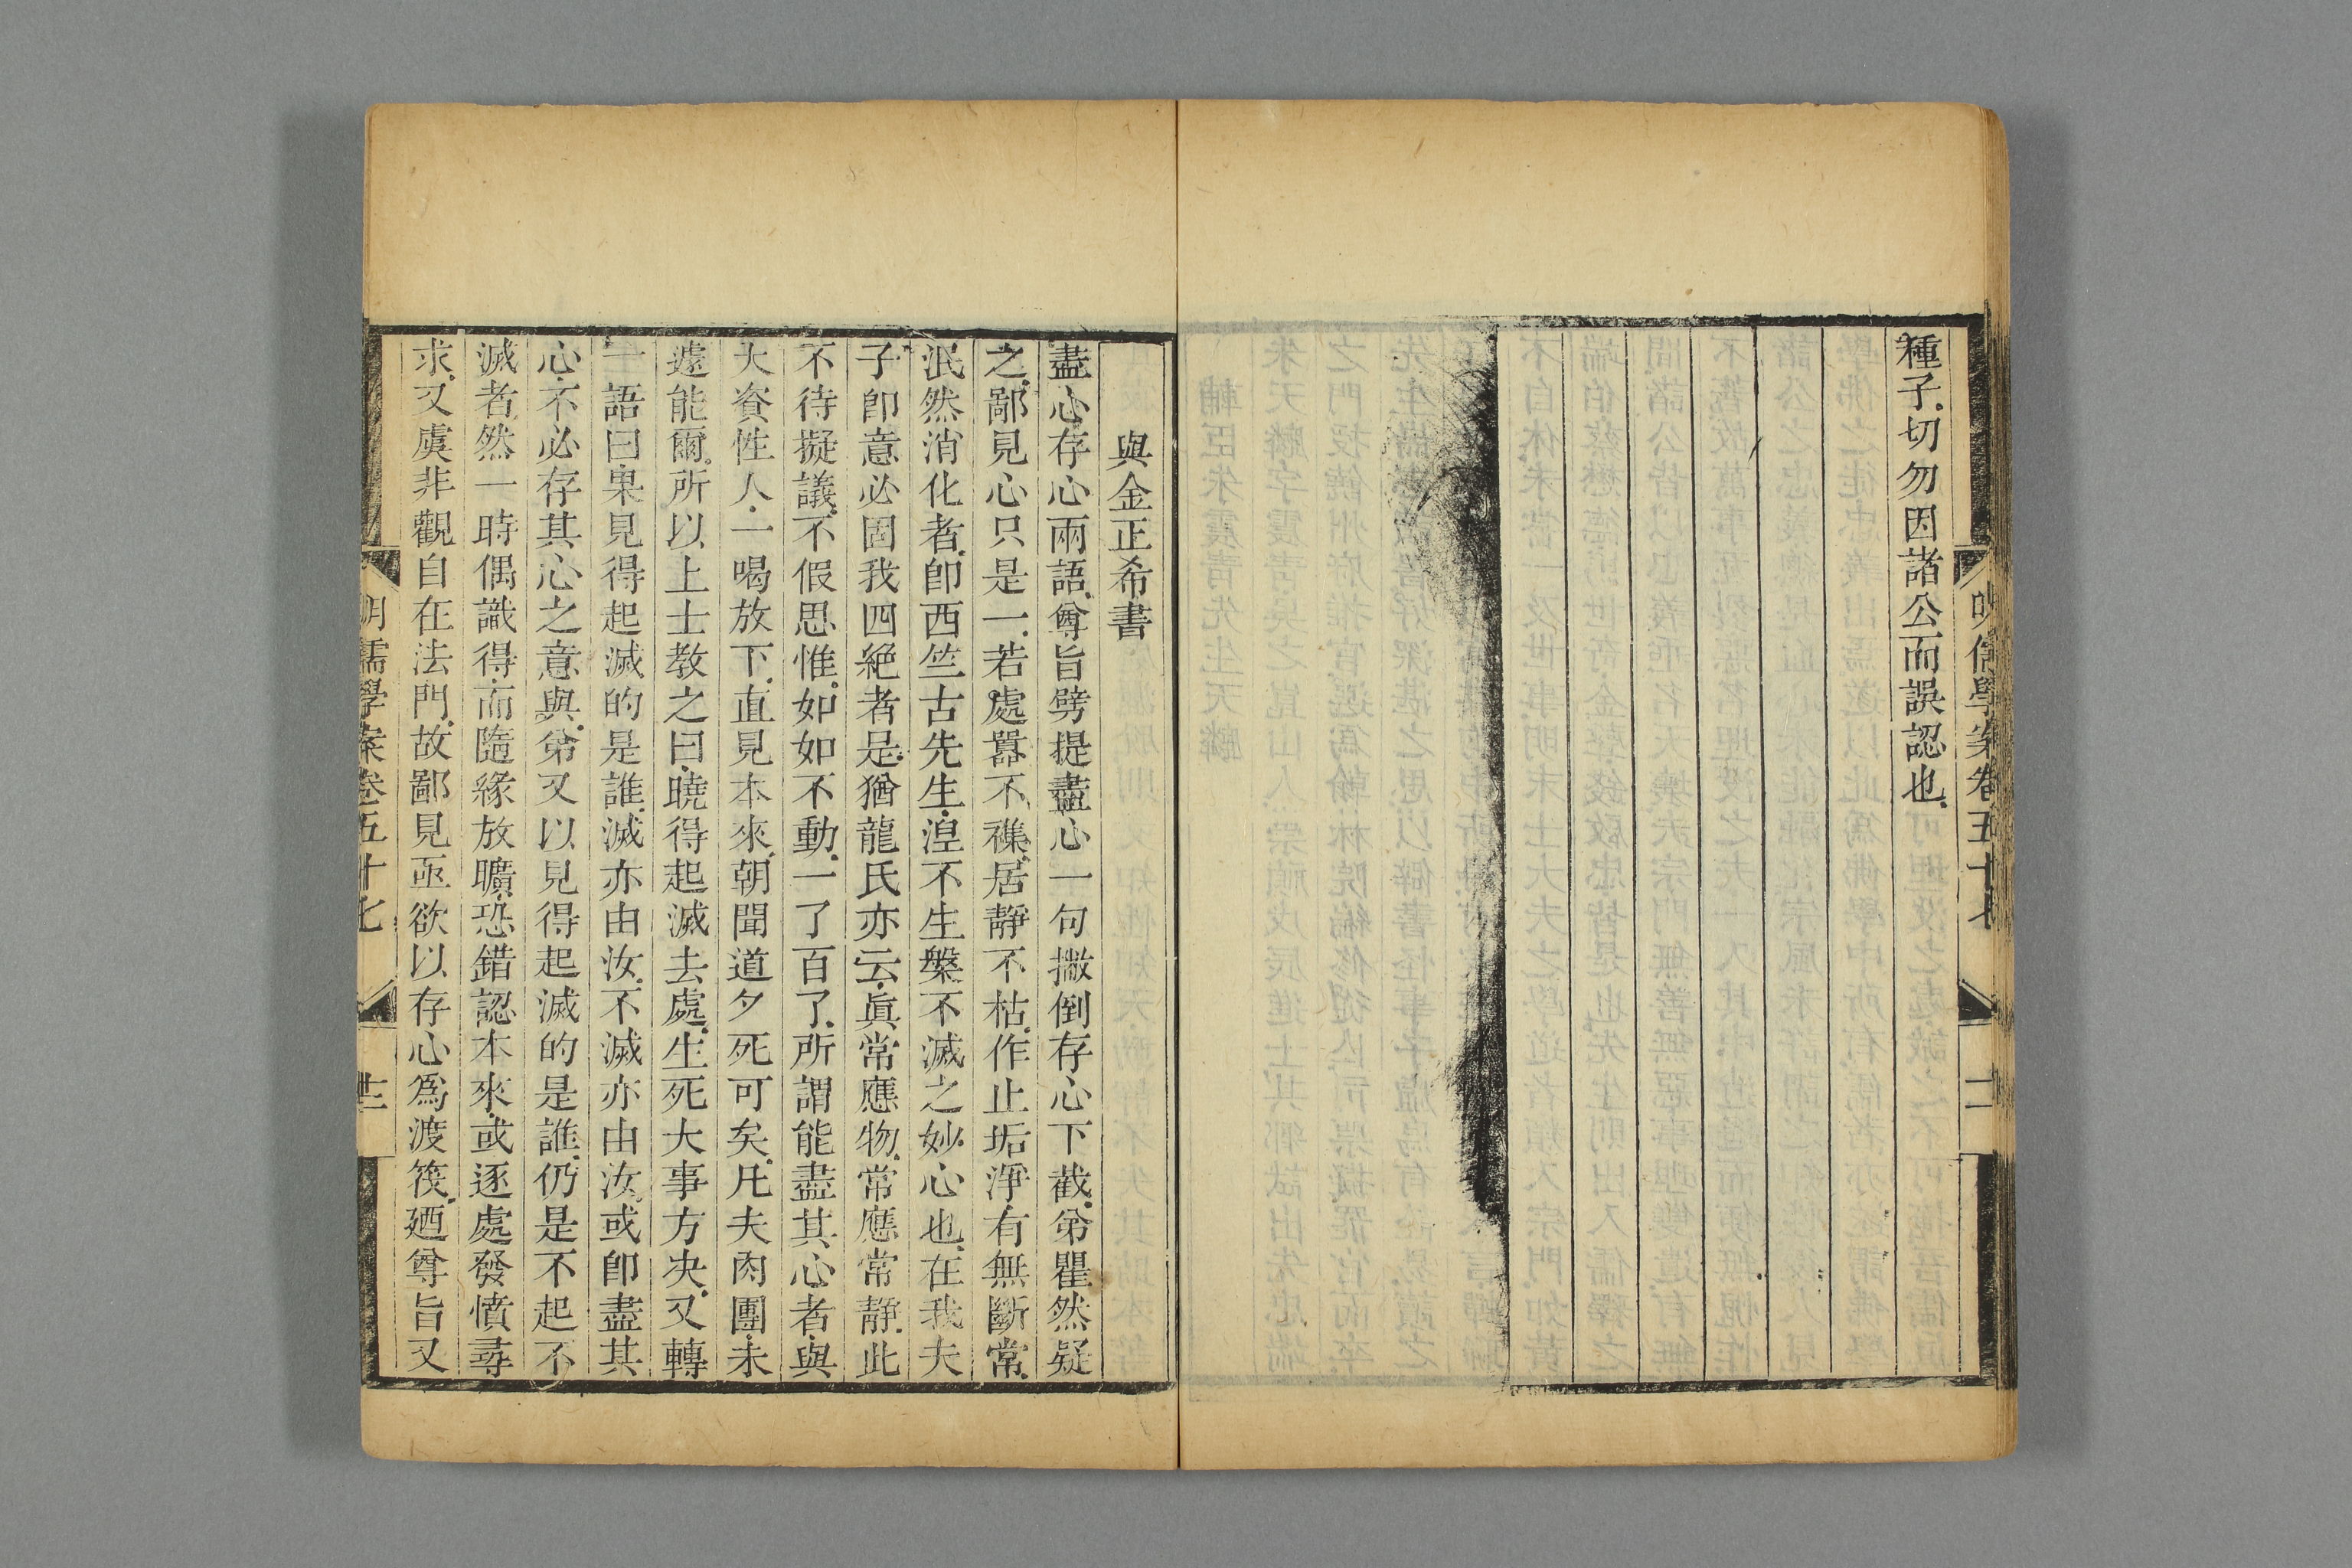 明儒學案卷五十七
二
種子切勿因諸公而誤認也
與金正希書
盡心存心兩語尊旨劈提盡心一句撇倒存心下截弟瞿然疑
之鄙見心只是一若處囂不襍居靜不枯作止垢淨有無斷常
泯然消化者卽西竺古先生湼不生槃不滅之妙心也在我夫
子卽意必固我四絕者是猶龍氏亦云眞常應物常應常靜此
不待擬議不假思惟如如不動一了百了所謂能盡其心者與
大資性人一喝放下直見本來朝聞道夕死可矣凡夫肉團未
遽能爾所以上士教之曰曉得起滅去處生死大事方决又轉
一語曰果見得起滅的是誰滅亦由汝不滅亦由汝或卽盡其
心不必存其心之意與弟又以見得起滅的是誰仍是不起不
滅者然一時偶識得而隨緣放曠恐錯認本來或逐處發憤尋
求又虞非觀自在法門故鄙見亟欲以存心爲渡筏廼尊旨又
明儒學案卷五十七